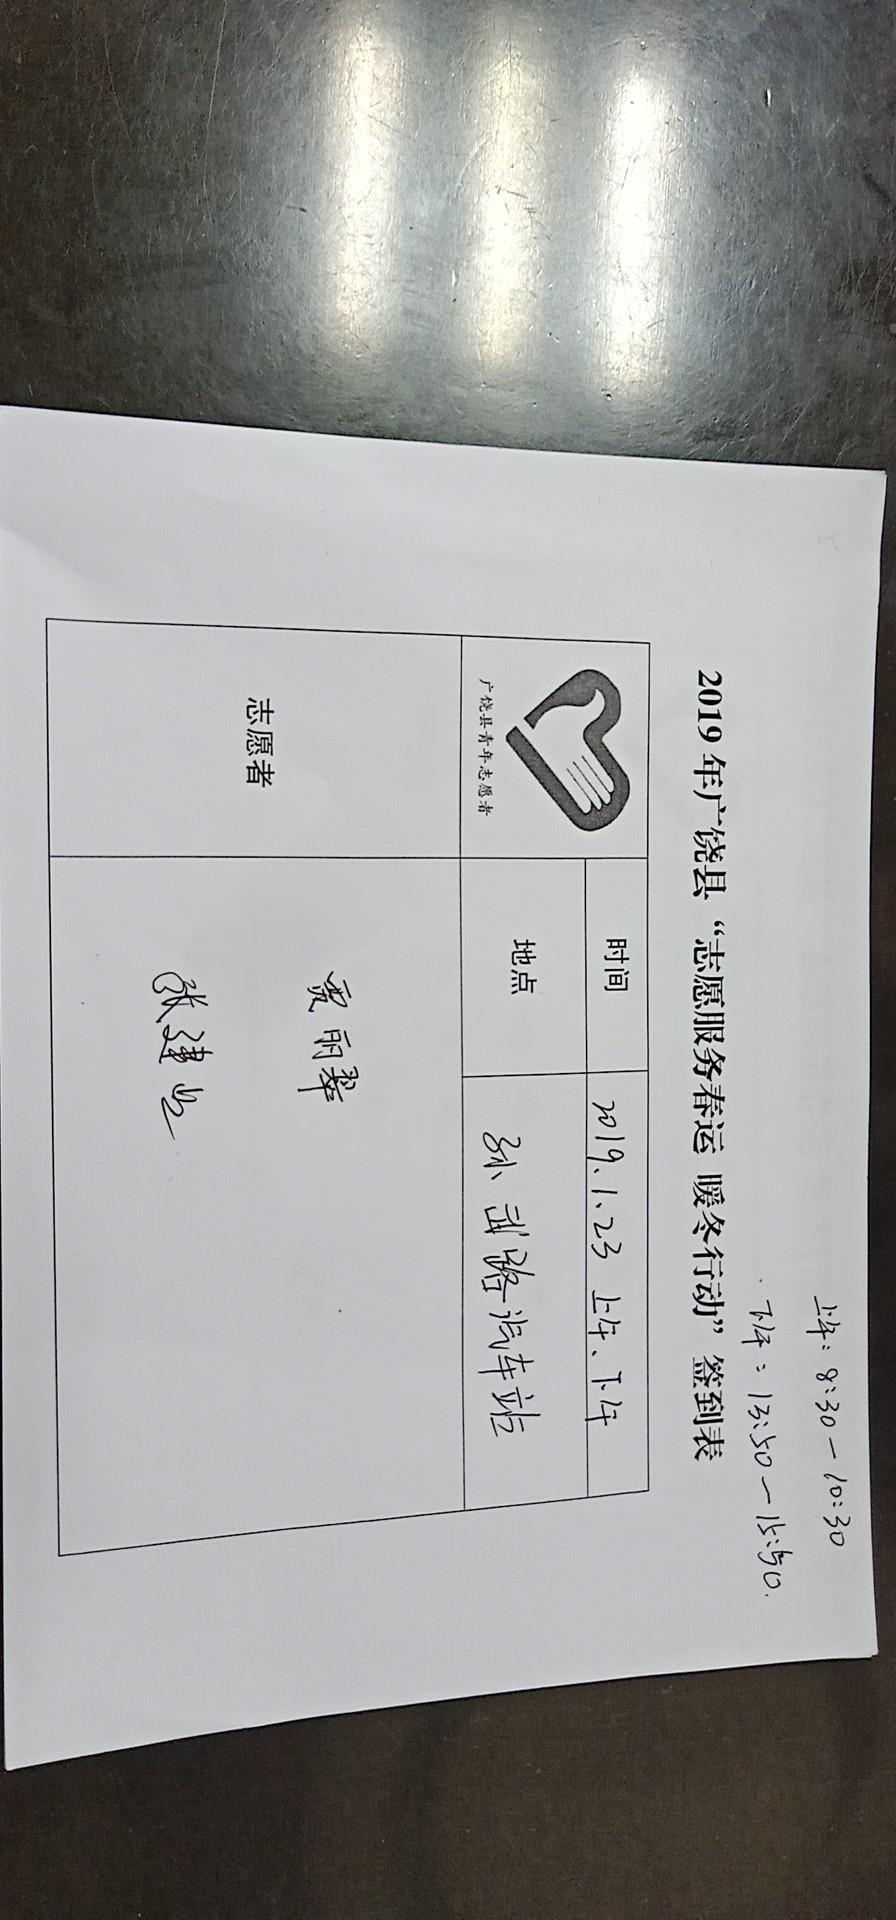 上午：8:30—10:30
下午：13:50—15:50.
2019年广饶县“志愿服务春运 暖冬行动”签到表
广饶县青年志愿者
时间
2019.1.23 上午、下午
地点
孙武路汽车站
志愿者
贾丽翠
张建